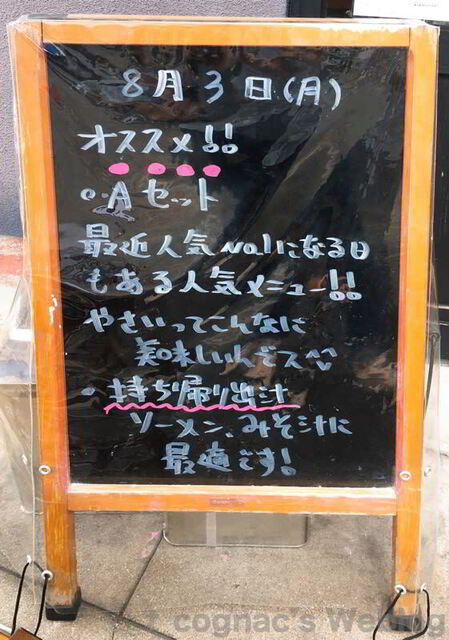 8月3日(月)
オススメ!!
・Aセット
最近人気No.1になる日
もある人気メニュー!!
やさいってこんなに
美味しいんでス
・持ち帰り出汁
ソーメン、みそ汁に
最適です!
cognac's Weblog